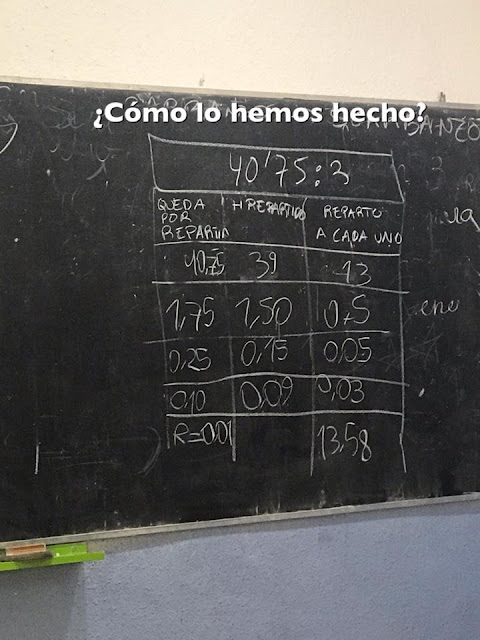 ¿Cómo lo hemos hecho?
40'75:3
QUEDA POR REPARTIR H REPARTIDO REPARTO A CADA UNO
40,75 39 13
1,75 1,50 0,5
0,25 0,15 0,05
0,10 0,09 0,03
R=0,01 13,58